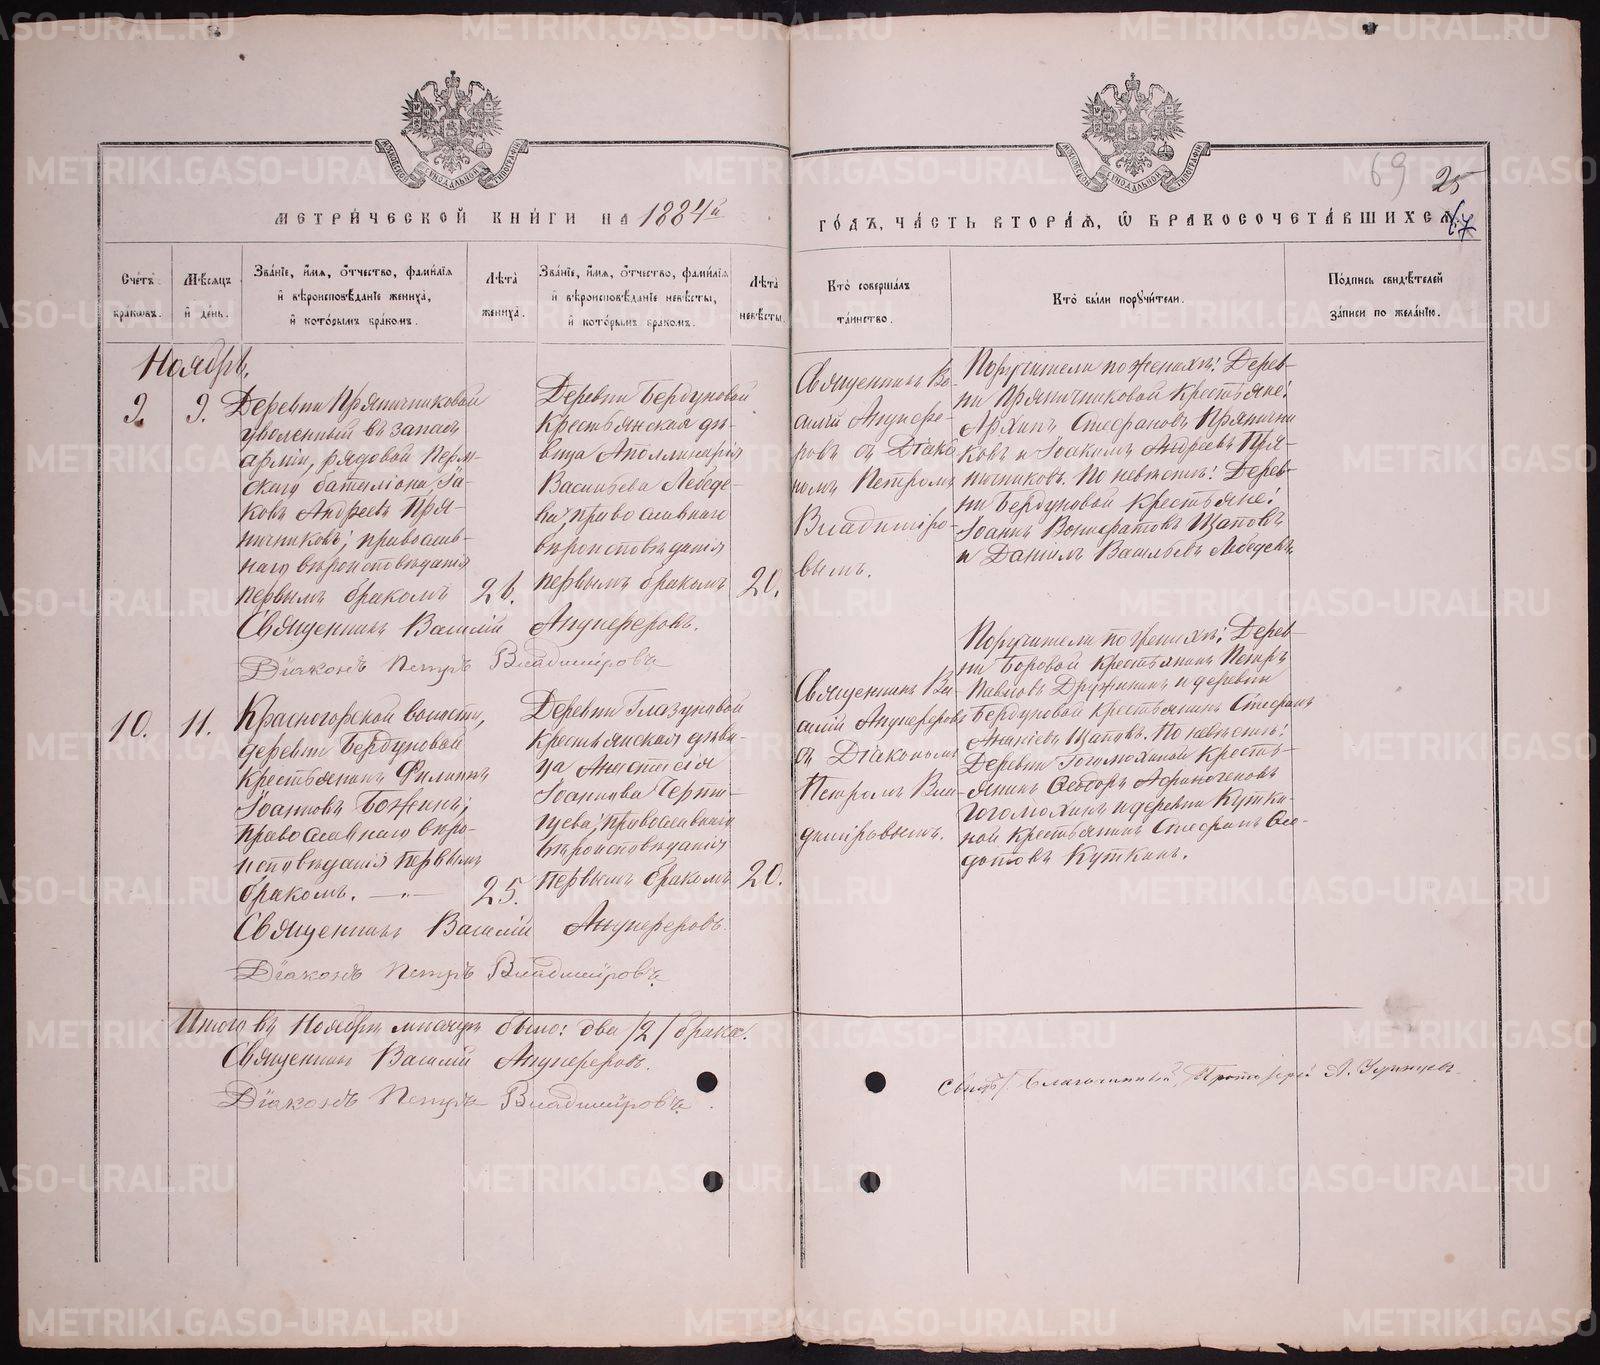 МЕТРИЧЕСКОЙ КНИГИ НА 1884й
ГОДЪ, ЧАСТЬ ВТОРАЯ, Ѡ БРАКОСОЧЕТАВШИХСЯ
69 25
Счетъ браковъ.
Мѣсяцъ и день.
Званіе, имя, отчество, фамилія
и вѣроисповѣданіе жениха,
и которымъ бракомъ.
Лѣта
жениха.
Званіе, имя, отчество, фамилія
и вѣроисповѣданіе невѣсты,
и которымъ бракомъ.
Лѣта
невѣсты.
Кто совершалъ
таинство.
Кто были поручители.
Подпись свидѣтелей
записи по желанію.
Ноябрь.
9. 9.
Деревни Пряничниковой
уволенный въ запасъ
арміи, рядовой Перм-
скаго баталіона, Іа-
ковъ Андреевъ Пря-
ничниковъ, православ-
наго вѣроисповѣданія
первымъ бракомъ 26.
Деревни Бердуновой
Крестьянская дѣ-
вица Аполлинарія
Васильева Лебеде-
ва, православнаго
вѣроисповѣданія
первымъ бракомъ 20.
Священникъ Василій Анцыферовъ.
Діаконъ Петръ Владиміровъ
Священникъ Ва-
силій Анцыфе-
ровъ съ Діако
номъ Петромъ
Владиміро-
вымъ.
Поручители по женихѣ: Дерев-
ни Пряничниковой Крестьяне:
Архипъ Стефановъ Пряничн
ковъ и Іоакимъ Андреевъ Пря-
ничниковъ. По невѣстѣ: Дерев-
ни Бердуновой Крестьяне:
Іоаннъ Вонифатовъ Щаповъ
и Даніилъ Васильевъ Лебедевъ
10. 11.
Красногорской волости,
деревни Бердуновой
Крестьянинъ Филиппъ
Іоанновъ Божинъ,
православнаго вѣро-
исповѣданія первымъ
бракомъ. — „ — 25.
Деревни Глазуновой
Крестьянская дѣви-
ца Анастасія
Іоаннова Черте-
щева, православнаго
вѣроисповѣданія
первымъ бракомъ 20.
Священникъ Василій Анцыферовъ.
Діаконъ Петръ Владиміровъ
Священникъ Ва-
силій Анцыферовъ
съ Діакономъ
Петромъ Вла-
диміровымъ.
Поручители по женихѣ: Дерев-
ни Боровой Крестьянинъ Петръ
Павловъ Дружининъ и деревни
Бердуновой Крестьянинъ Стефанъ
Ананіевъ Щаповъ. По невѣстѣ:
Деревни Гоголюхиной Кресть-
янинъ Ѳеодоръ Афиногеновъ
Гоголюхинъ и деревни Кутки-
ной Крестьянинъ Стефанъ Ѳе-
дотовъ Куткинъ.
Итого въ Ноябрѣ мѣсяцѣ было: два /2/ брака.
Священникъ Василій Анцыферовъ.
Діаконъ Петръ Владиміровъ
Благочинный, Протоіерей А.
METRIKI.GASO-URAL.RU